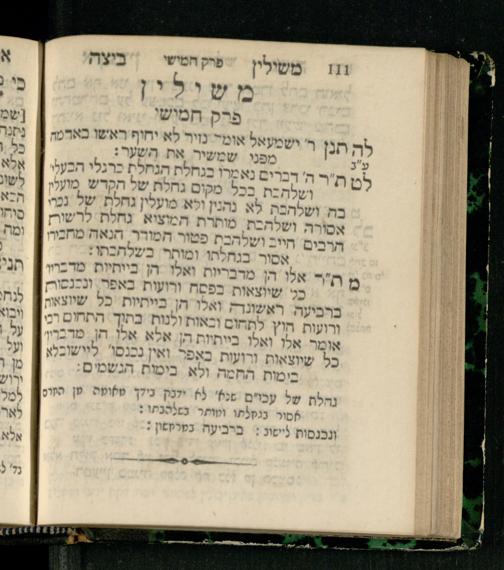 111 משילין פרק חמישי ביצה
משילין
פרק חמישי
לה תנן ר' ישמעאל אומר נזיר לא יחוף ראשו באדמה
ע"ב מפני שמשיר את השער:
לט ת"ר ה' דברים נאמרו בגחלת הגחלת כרגלי הבעלי'
ושלהבת בכל מקום גחלת של הקדש מועלין
בה ושלהבת לא נהנין ולא מועלין גחלת של נכרי
אסורה ושלהבת מותרת המוציא גחלת לרשות
הרבים חייב ושלהבת פטור המודר הנאה מחבירו
אסור בגחלתו ומותר בשלהבתו:
מ ת"ר אלו הן מדבריות ואלו הן בייתיות מדבריו'
כל שיוצאות בפסח ורועות באפר ונכנסות
ברביעה ראשונה ואלו הן בייתיות כל שיוצאות
ורועות הוץ לתחום ובאות ולנות בתוך התחום רבי
אומר אלו ואלו בייתיות הן אלא אלו הן מדבריו'
כל שיוצאות ורועות באפר ואין נכנסו' ליישוב לא
בימות החמה ולא בימות הגשמים:
גחלת של עכו"ם שנא' לא ידבק בידך מאומה מן החרם
אסור בגחלתו ומותר בשלהבתו:
ונכנסות לישוב: ברביעה במרחשון: